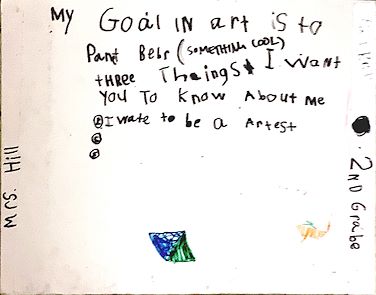 My Goal IN art is to
Pant Bebr (SOMETHING COOL)
tHREE Theings I want
You To Know About me
I wate to be a Artest
Mrs. Hill
2ND Grabe